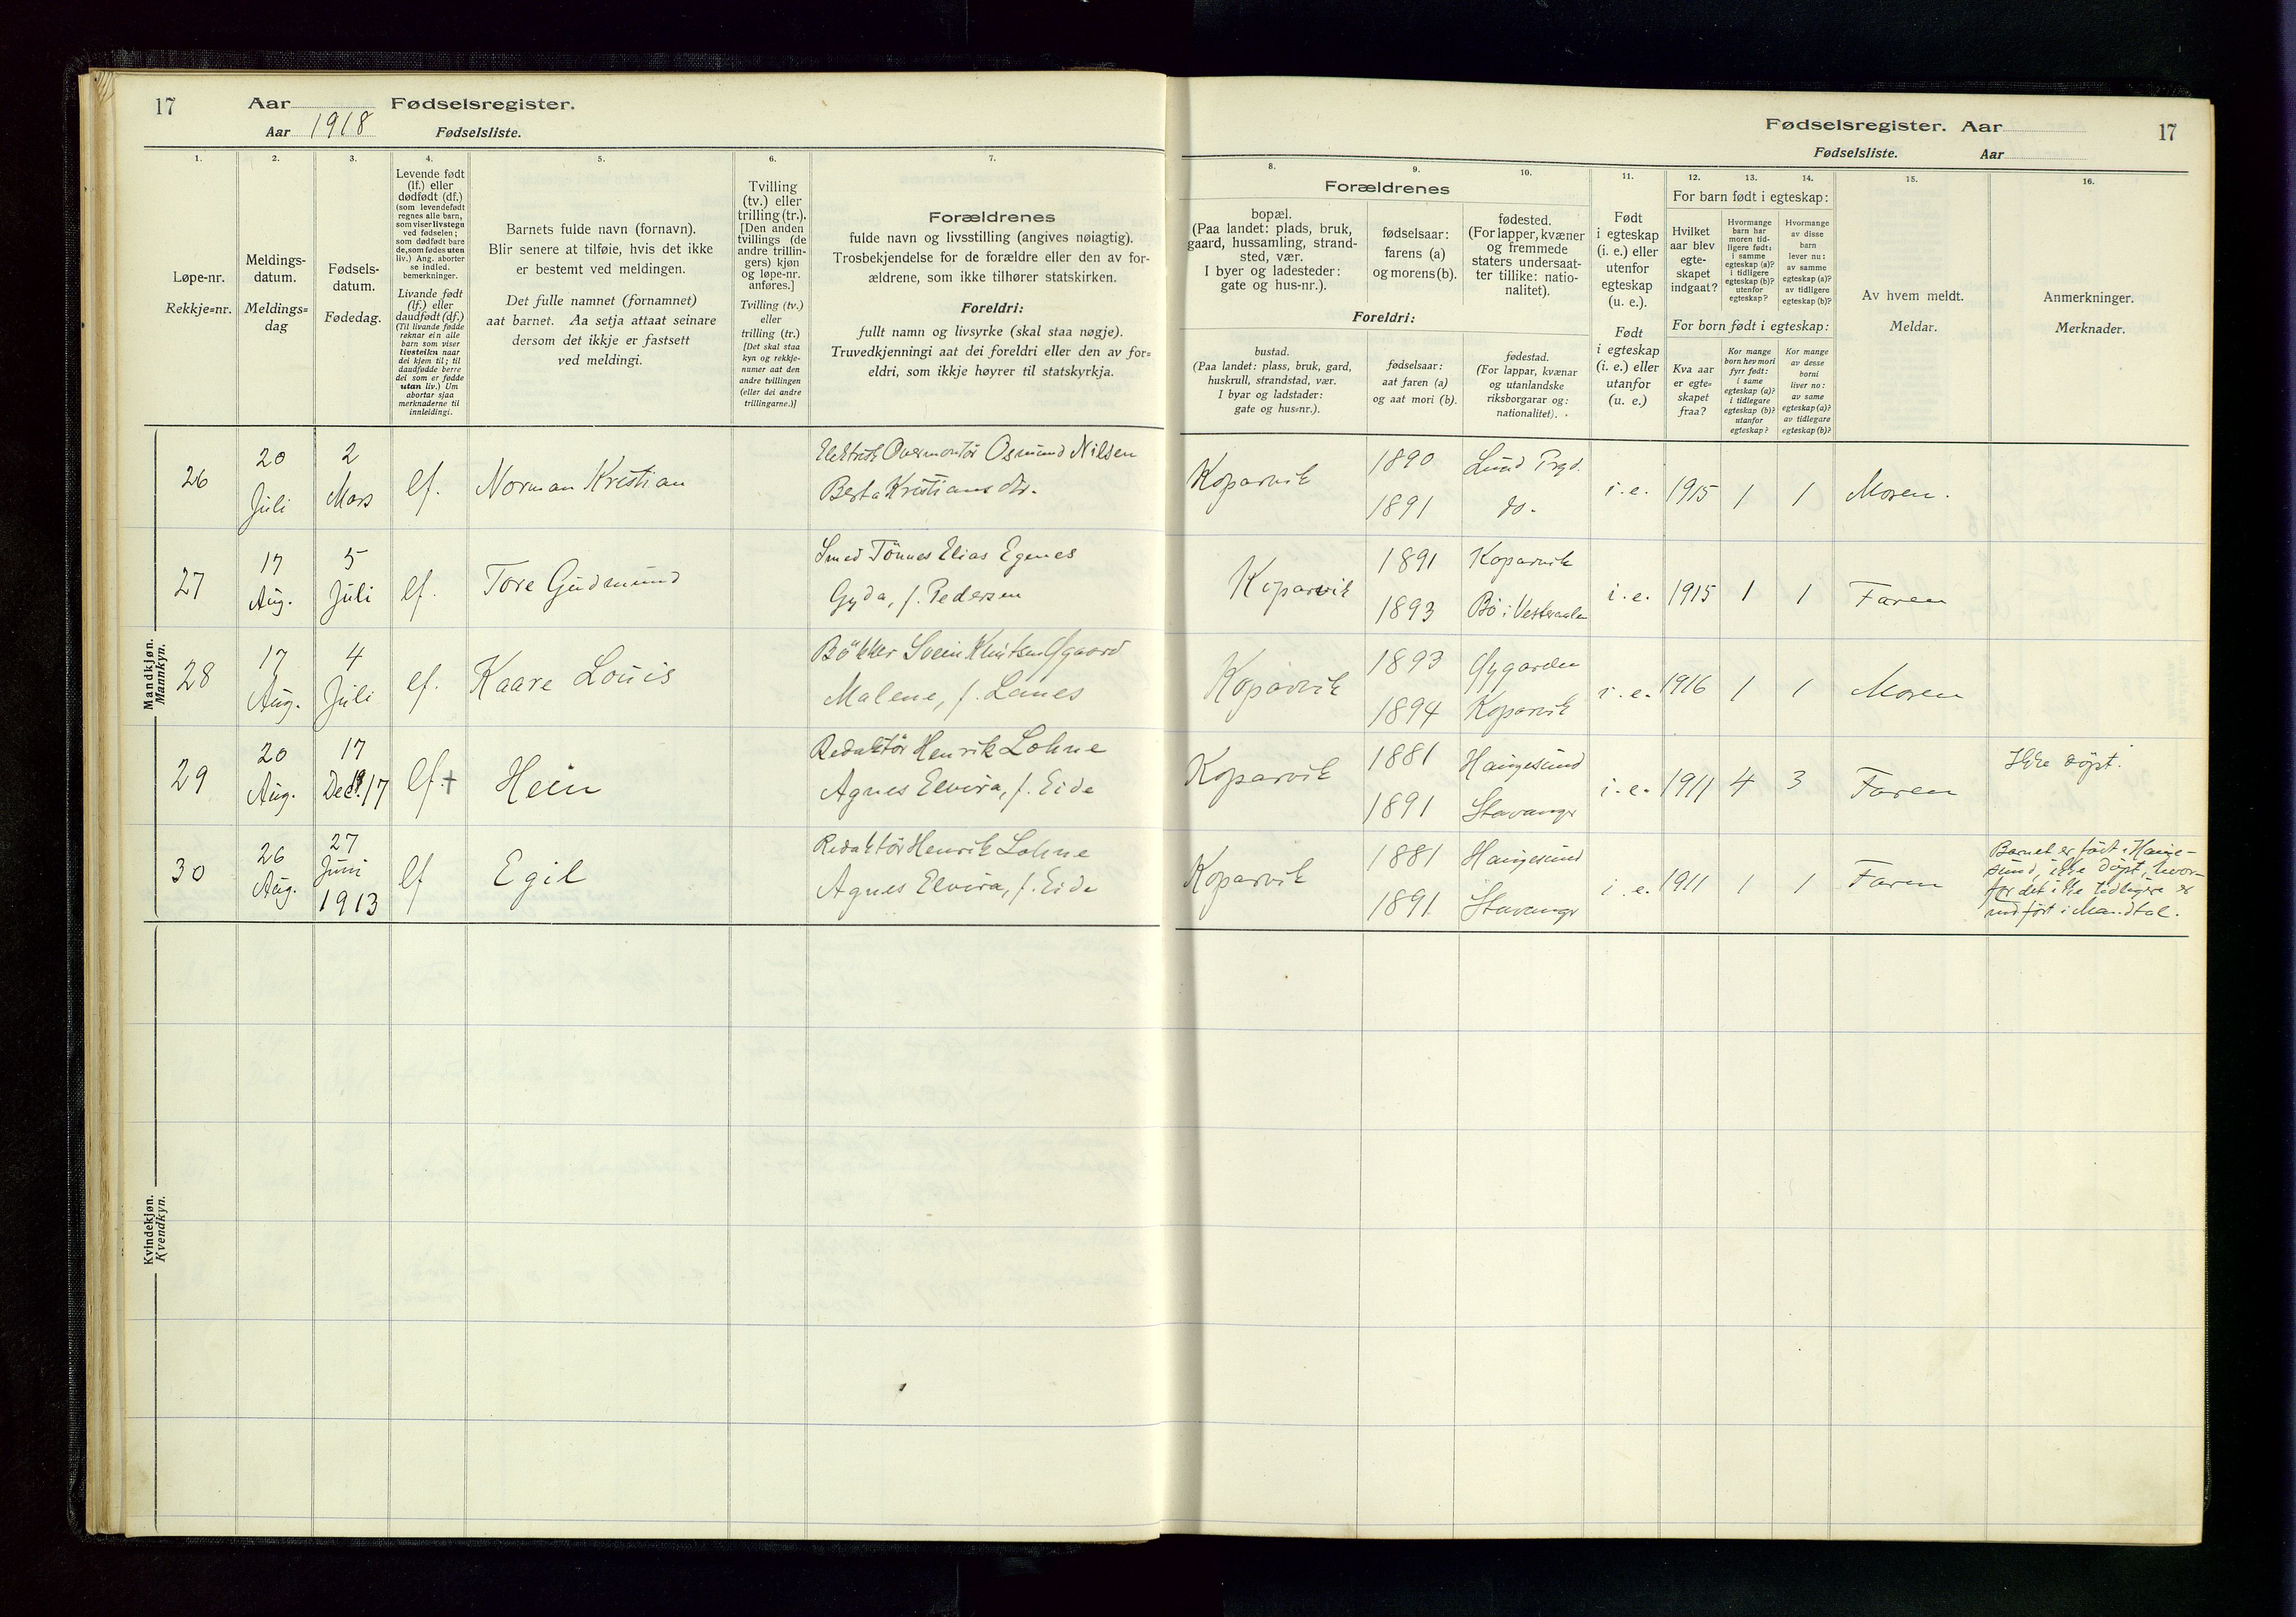 17
Aar Fødselsregister.
Aar 1918 Fødselsliste.
1.
2.
3.
4.
5.
6.
7.
Løpe-nr.
Rekkje=nr.
Meldings-
datum.
Meldings=
dag
Fødsels-
datum.
Fødedag.
Levende født
(lf.) eller
dødfødt (df.)
(som levendefødt
regnes alle barn,
som viser livstegn
ved fødselen;
som dødfødt bare
de, som fødes uten
liv.) Ang. aborter
se indled.
bemerkninger.
Livande født
(lf.) eller
daudfødt (df.)
(Til livande fødde
reknar ein alle
barn som viser
livsteikn naar
dei kjem til; til
daudfødde berre
dei som er fødde
utan liv.) Um
abortar sjaa
merknaderne til
innleidingi.
Barnets fulde navn (fornavn).
Blir senere at tilføie, hvis det ikke
er bestemt ved meldingen.
Det fulle namnet (fornamnet)
aat barnet. Aa setja attaat seinare
dersom det ikkje er fastsett
ved meldingi.
Tvilling
(tv.) eller
trilling (tr.).
[Den anden
tvillings (de
andre trillin-
gers) kjøn
og løpe-nr.
anføres.]
Tvilling (tv.)
eller
trilling (tr.)
[Det skal staa
kyn og rekkje-
numer aat den
andre tvillingen
(eller dei andre
trillingarne.)]
Forældrenes
fulde navn og livsstilling (angives nøiagtig).
Trosbekjendelse for de forældre eller den av for-
ældrene, som ikke tilhører statskirken.
Foreldri:
fullt namn og livsyrke (skal staa nøgje).
Truvedkjenningi aat dei foreldri eller den av for=
eldri, som ikkje høyrer til statskyrkja.
Mandkjøn.
Mannkyn.
26
20
Juli
2
Mars
lf.
Norman Kristian
Elektrisk Overmontør Osmund Nilsen
Berta Kristiansdtr.
27
17
Aug.
5
Juli
lf.
Tore Gudmund
Smed Tönnes Elias Egenes
Gyda, f. Pedersen
28
17
Aug.
4
Juli
lf.
Kaare Louis
Bökker Svein Knutsen Øgaard
Malene, f. Lanes
29
20
Aug.
17
Dec. 17
lf. +
Hein
Redaktør Henrik Lohne
Agnes Elvira, f. Eide
30
26
Aug.
27
Juni
1913
lf
Egil
Redaktør Henrik Lohne
Agnes Elvira, f. Eide
Kvindekjøn.
Kvendkyn.
Fødselsregister. Aar 17
Fødselsliste. Aar
8.
9.
10.
11.
12.
13.
14.
15.
16.
Forældrenes
bopæl.
(Paa landet: plads, bruk,
gaard, hussamling, strand-
sted, vær.
I byer og ladesteder:
gate og hus-nr.).
fødselsaar:
farens (a)
og morens (b).
fødested.
(For lapper, kvæner
og fremmede
staters undersaat-
ter tillike: natio-
nalitet).
Foreldri:
bustad.
(Paa landet: plass, bruk, gard,
huskrull, strandstad, vær.
I byar og ladstader:
gate og hus=nr.).
fødselsaar:
aat faren (a)
og aat mori (b).
fødestad.
(For lappar, kvænar
og utanlandske
riksborgarar og:
nationalitet).
Født
i egteskap
(i. e.) eller
utenfor
egteskap
(u. e.).
Født
i egteskap
(i. e.) eller
utanfor
(u. e.)
For barn født i egteskap:
Hvilket
aar blev
egte-
skapet
indgaat?
Hvormange
barn har
moren tid-
ligere født:
i samme
egteskap (a)?
i tidligere
egteskap (b)?
utenfor
egteskap?
Hvormange
av disse
barn
lever nu:
av samme
egteskap (a)?
av tidligere
egteskap (b)?
For born født i egteskap:
Kva aar
er egte=
skapet
fraa?
Kor mange
born hev mori
fyrr født:
i same
egteskap (a)?
i tidlegare
egteskap (b)?
utanfor
egteskap?
Kor mange
av desse
borni
liver no:
av same
egteskap (a)?
av tidlegare
egteskap (b)?
Av hvem meldt.
Meldar.
Anmerkninger.
Merknader.
Koparvik
1890
1891
Lund Prgd.
do.
i. e.
1915
1
1
Moren.
Koparvik
1891
1893
Koparvik
Bö i Vesteraalen
i. e.
1915
1
1
Faren
Koparvik
1893
1894
Øygarden
Koparvik
i. e.
1916
1
1
Moren
Koparvik
1881
1891
Haugesund
Stavanger
i. e.
1911
4
3
Faren
Ikke döpt.
Koparvik
1881
1891
Haugesund
Stavanger
i. e.
1911
1
1
Faren
Barnet er født i Hauge-
sund, ikke döpt, hvor-
for det ikke tidligere er
indført i Mandtal.